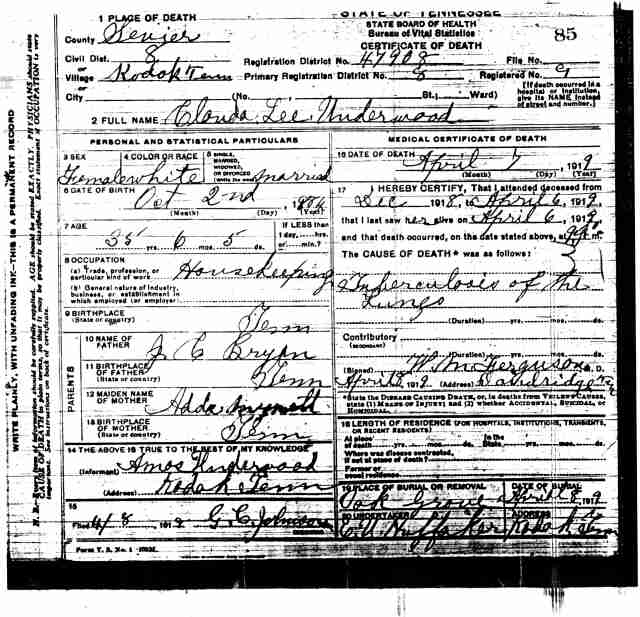 STATE OF TENNESSEE
STATE BOARD OF HEALTH
Bureau of Vital Statistics
CERTIFICATE OF DEATH
85
1 PLACE OF DEATH
County Sevier
Civil Dist. 8
Village Kodak Tenn
City
Registration District No. 47908
File No.
Primary Registration District No. 8
Registered No. 9
(No. St.; Ward)
[If death occurred in a hospital or institution, give its NAME instead of street and number.]
2 FULL NAME Clonda Lee Underwood
PERSONAL AND STATISTICAL PARTICULARS
3 SEX Female
4 COLOR OR RACE white
5 SINGLE, MARRIED, WIDOWED, OR DIVORCED (Write the word) married
6 DATE OF BIRTH Oct 2nd
(Month) (Day) (Year)
7 AGE 35 yrs. 6 mos. 5 ds.
If LESS than 1 day,....hrs. or....min.?
8 OCCUPATION
(a) Trade, profession, or particular kind of work Housekeeping
(b) General nature of Industry, business, or establishment in which employed (or employer)
9 BIRTHPLACE
(State or country) Tenn
PARENTS
10 NAME OF FATHER J C Bryan
11 BIRTHPLACE OF FATHER
(State or country) Tenn
12 MAIDEN NAME OF MOTHER Adda
13 BIRTHPLACE OF MOTHER
(State or country) Tenn
14 THE ABOVE IS TRUE TO THE BEST OF MY KNOWLEDGE
(Informant) Amos Underwood
(Address) Kodak Tenn
15
Filed 4/8 191 G. C. Johnson
Form V. S. No. 1
MEDICAL CERTIFICATE OF DEATH
16 DATE OF DEATH April 7, 1919
(Month) (Day) (Year)
17 I HEREBY CERTIFY, That I attended deceased from
Dec 1918, to April 6, 1919,
that I last saw her alive on April 6, 1919,
and that death occurred, on the date stated above, at m.
The CAUSE OF DEATH* was as follows:
Tuberculosis of the
Lungs
(Duration) yrs. mos. ds.
Contributory
(SECONDARY)
(Duration) yrs. mos. ds.
(Signed) Ferguson M. D.
April 8, 1919 (Address) Dandridge
*State the DISEASE CAUSING DEATH, or, in deaths from VIOLENT CAUSES, state (1) MEANS OF INJURY; and (2) whether ACCIDENTAL, SUICIDAL, or HOMICIDAL.
18 LENGTH OF RESIDENCE (FOR HOSPITALS, INSTITUTIONS, TRANSIENTS, OR RECENT RESIDENTS)
At place of death yrs. mos. ds. In the State yrs. mos. ds.
Where was disease contracted, if not at place of death?
Former or usual residence
19 PLACE OF BURIAL OR REMOVAL Oak Grove
DATE OF BURIAL April 8, 1919
20 UNDERTAKER Huffaker
ADDRESS Kodak Tenn
WRITE PLAINLY, WITH UNFADING INK—THIS IS A PERMANENT RECORD